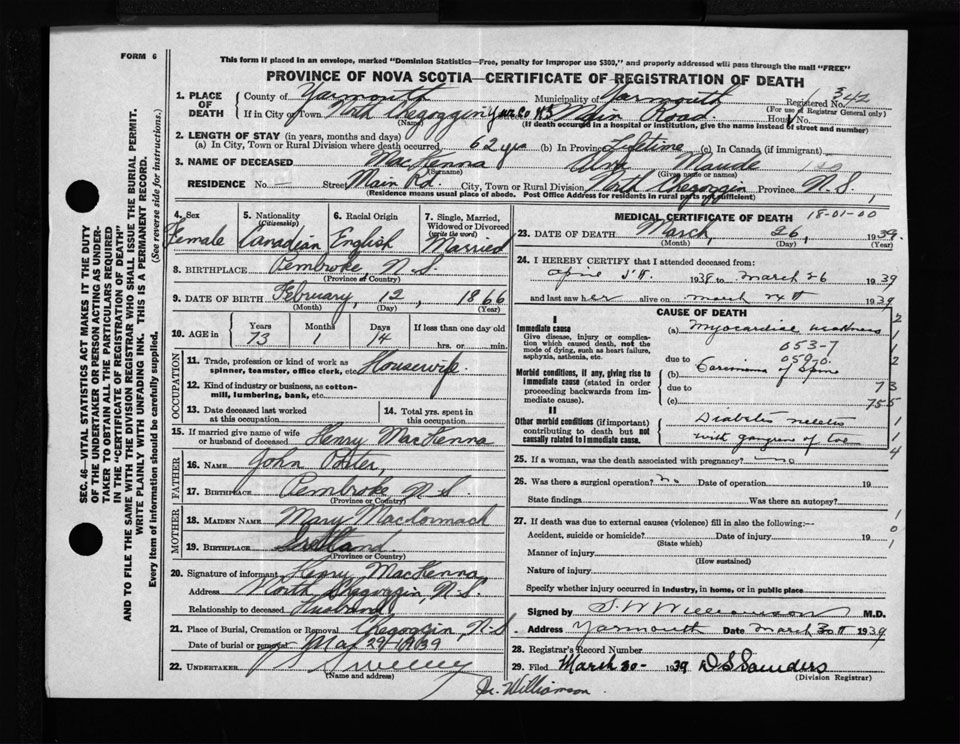 FORM 6
This form if placed in an envelope, marked "Dominion Statistics—Free, penalty for improper use $300," and properly addressed will pass through the mail "FREE"
PROVINCE OF NOVA SCOTIA—CERTIFICATE OF REGISTRATION OF DEATH
1. PLACE OF DEATH { County of Yarmouth Municipality of Yarmouth Registered No. 342
(For use of Registrar General only)
If in City or Town North Chegoggin Yar. Co NS Main Road. House No.
(Name) (If death occurred in a hospital or institution, give the name instead of street and number)
2. LENGTH OF STAY (in years, months and days)
(a) In City, Town or Rural Division where death occurred, 62 yrs (b) In Province Lifetime (c) In Canada (if immigrant)
3. NAME OF DECEASED MacKenna Maude
(Surname) (Given name or names)
RESIDENCE No. — Street Main Rd. City, Town or Rural Division North Chegoggin Province N.S.
(Residence means usual place of abode. Post Office Address for residents in rural parts not sufficient)
4. Sex Female
5. Nationality (Citizenship) Canadian
6. Racial Origin English
7. Single, Married, Widowed or Divorced (write the word) Married
8. BIRTHPLACE Pembroke, N.S.
(Province or Country)
9. DATE OF BIRTH February, 12, 1866
(Month) (Day) (Year)
10. AGE in { Years 73 Months 1 Days 14 If less than one day old hrs. or min.
OCCUPATION
11. Trade, profession or kind of work as spinner, teamster, office clerk, etc. Housewife
12. Kind of industry or business, as cotton-mill, lumbering, bank, etc.
13. Date deceased last worked at this occupation
14. Total yrs. spent in this occupation
15. If married give name of wife or husband of deceased Henry MacKenna
FATHER
16. NAME John
17. BIRTHPLACE Pembroke N.S.
(Province or Country)
MOTHER
18. MAIDEN NAME Mary MacCormack
19. BIRTHPLACE Scotland
(Province or Country)
20. Signature of informant Henry MacKenna,
Address North Chegoggin N.S.
Relationship to deceased Husband
21. Place of Burial, Cremation or Removal Chegoggin, N.S
Date of burial or removal Mar 29 1939
22. UNDERTAKER Sweeny
(Name and address)
Dr. Williamson.
MEDICAL CERTIFICATE OF DEATH 18-01-00
23. DATE OF DEATH March, 26, 1939.
(Month) (Day) (Year)
24. I HEREBY CERTIFY that I attended deceased from
1938 to March 26 1939
and last saw her alive on March 24th 1939
CAUSE OF DEATH
I
Immediate cause
Give disease, injury or complication which caused death, not the mode of dying, such as heart failure, asphyxia, asthenia, etc.
(a) Myocardial weakness
053-7
due to 059
Morbid conditions, if any, giving rise to immediate cause (stated in order proceeding backwards from immediate cause).
(b) Carcinoma of Spine
due to
(c)
II
Other morbid conditions (if important) contributing to death but not causally related to immediate cause.
Diabetes
with gangrene of toe
25. If a woman, was the death associated with pregnancy? no
26. Was there a surgical operation? no Date of operation 19
State findings Was there an autopsy?
27. If death was due to external causes (violence) fill in also the following:—
Accident, suicide or homicide? Date of injury 19
(State which)
Manner of injury
(How sustained)
Nature of injury
Specify whether injury occurred in industry, in home, or in public place
Signed by S. W Williamson M.D.
Address Yarmouth Date March 30th 1939
28. Registrar's Record Number
29. Filed March 30- 1939 D S Saunders
(Division Registrar)
SEC. 46—VITAL STATISTICS ACT MAKES IT THE DUTY
OF THE UNDERTAKER OR PERSON ACTING AS UNDER-
TAKER TO OBTAIN ALL THE PARTICULARS REQUIRED
IN THE "CERTIFICATE OF REGISTRATION OF DEATH"
AND TO FILE THE SAME WITH THE DIVISION REGISTRAR WHO SHALL ISSUE THE BURIAL PERMIT.
WRITE PLAINLY WITH UNFADING INK. THIS IS A PERMANENT RECORD.
Every item of information should be carefully supplied. (See reverse side for instructions.)